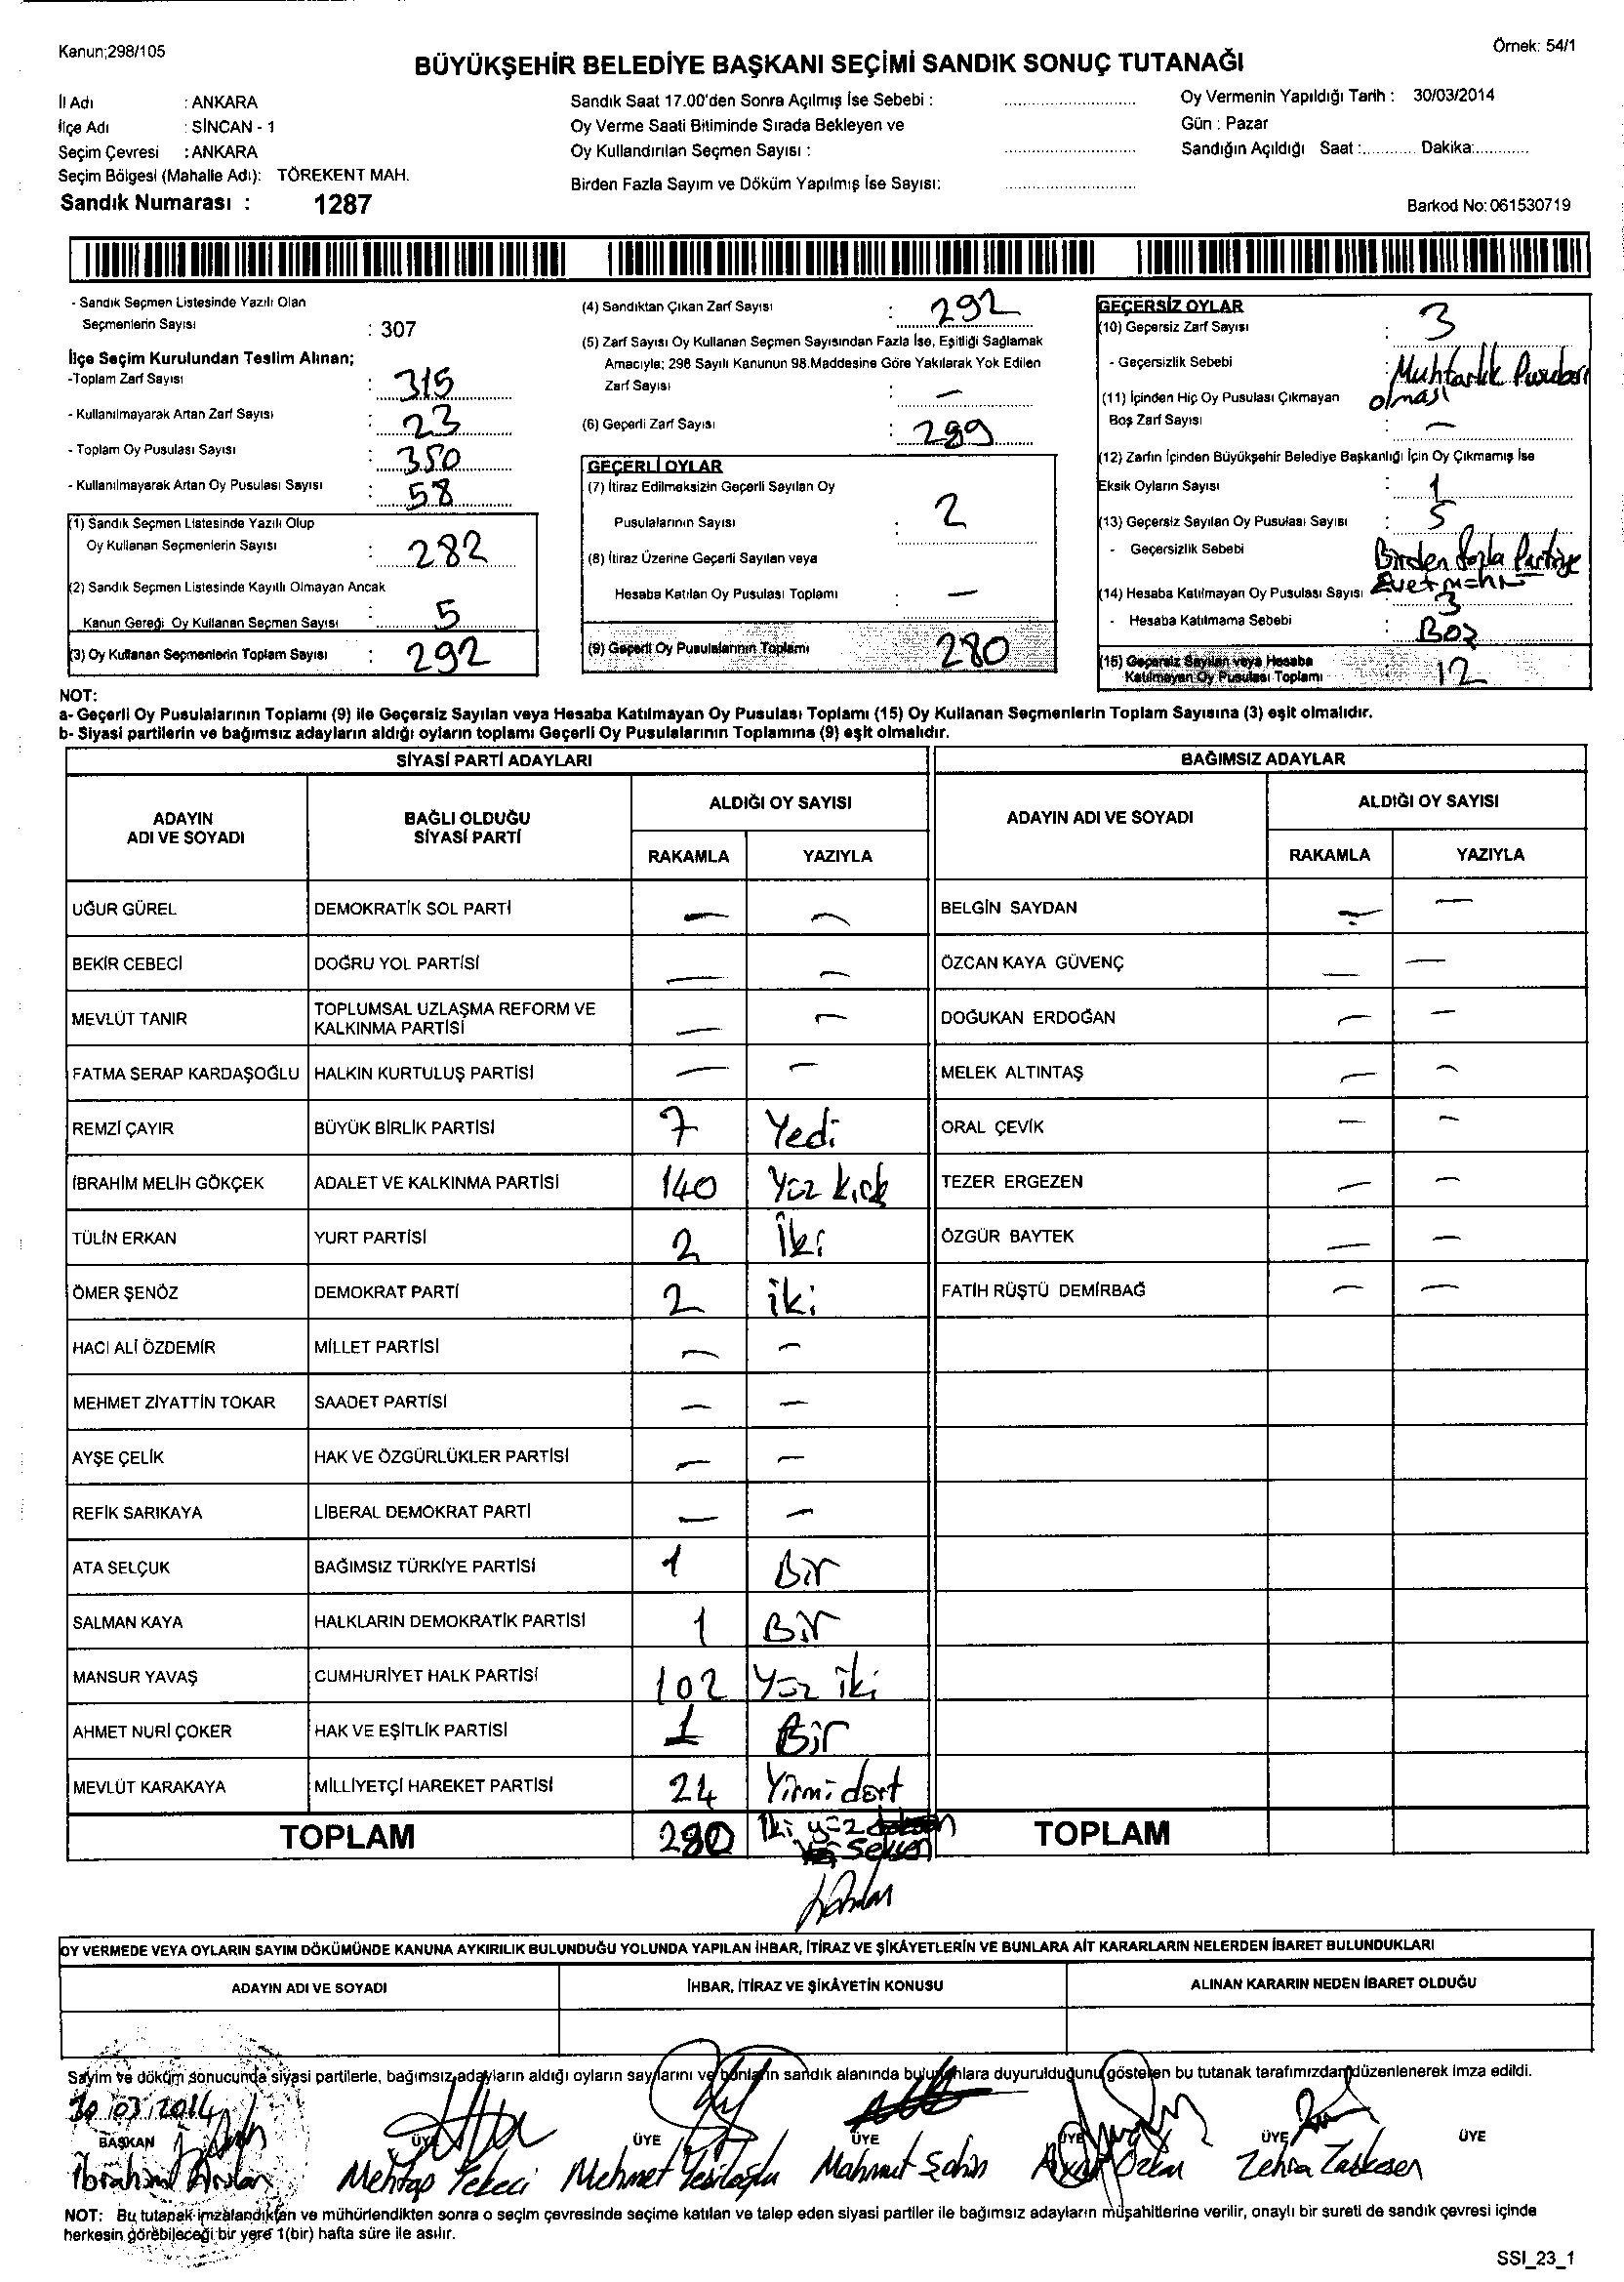 Kanun;298/105
Örnek: 54/1
BÜYÜKŞEHİR BELEDİYE BAŞKANI SEÇİMİ SANDIK SONUÇ TUTANAĞI
İl Adı : ANKARA
İlçe Adı : SİNCAN - 1
Seçim Çevresi : ANKARA
Seçim Bölgesi (Mahalle Adı): TÖREKENT MAH.
Sandık Numarası : 1287
Sandık Saat 17.00'den Sonra Açılmış İse Sebebi :
Oy Verme Saati Bitiminde Sırada Bekleyen ve
Oy Kullandırılan Seçmen Sayısı :
Birden Fazla Sayım ve Döküm Yapılmış İse Sayısı:
Oy Vermenin Yapıldığı Tarih : 30/03/2014
Gün : Pazar
Sandığın Açıldığı Saat :........... Dakika:...........
Barkod No: 061530719
- Sandık Seçmen Listesinde Yazılı Olan
Seçmenlerin Sayısı : 307
İlçe Seçim Kurulundan Teslim Alınan;
-Toplam Zarf Sayısı : 315
- Kullanılmayarak Artan Zarf Sayısı : 23
- Toplam Oy Pusulası Sayısı : 350
- Kullanılmayarak Artan Oy Pusulası Sayısı : 58
(1) Sandık Seçmen Listesinde Yazılı Olup
Oy Kullanan Seçmenlerin Sayısı : 282
(2) Sandık Seçmen Listesinde Kayıtlı Olmayan Ancak
Kanun Gereği Oy Kullanan Seçmen Sayısı : 5
(3) Oy Kullanan Seçmenlerin Toplam Sayısı : 292
(4) Sandıktan Çıkan Zarf Sayısı : 292
(5) Zarf Sayısı Oy Kullanan Seçmen Sayısından Fazla İse, Eşitliği Sağlamak
Amacıyla; 298 Sayılı Kanunun 98.Maddesine Göre Yakılarak Yok Edilen
Zarf Sayısı : —
(6) Geçerli Zarf Sayısı : 289
GEÇERLİ OYLAR
(7) İtiraz Edilmeksizin Geçerli Sayılan Oy
Pusulalarının Sayısı : 2
(8) İtiraz Üzerine Geçerli Sayılan veya
Hesaba Katılan Oy Pusulası Toplamı : —
(9) Geçerli Oy Pusulalarının Toplamı 280
GEÇERSİZ OYLAR
(10) Geçersiz Zarf Sayısı : 3
- Geçersizlik Sebebi Muhtarlık Pusulası
olması
(11) İçinden Hiç Oy Pusulası Çıkmayan
Boş Zarf Sayısı : —
(12) Zarfın İçinden Büyükşehir Belediye Başkanlığı İçin Oy Çıkmamış İse
Eksik Oyların Sayısı : 1
(13) Geçersiz Sayılan Oy Pusulası Sayısı : 5
- Geçersizlik Sebebi Birden fazla Partiye
Evet
(14) Hesaba Katılmayan Oy Pusulası Sayısı 3
- Hesaba Katılmama Sebebi : Boş
(15) Geçersiz Sayılan veya Hesaba
Katılmayan Oy Pusulası Toplamı 12
NOT:
a- Geçerli Oy Pusulalarının Toplamı (9) ile Geçersiz Sayılan veya Hesaba Katılmayan Oy Pusulası Toplamı (15) Oy Kullanan Seçmenlerin Toplam Sayısına (3) eşit olmalıdır.
b- Siyasi partilerin ve bağımsız adayların aldığı oyların toplamı Geçerli Oy Pusulalarının Toplamına (9) eşit olmalıdır.
SİYASİ PARTİ ADAYLARI
BAĞIMSIZ ADAYLAR
ADAYIN
ADI VE SOYADI
BAĞLI OLDUĞU
SİYASİ PARTİ
ALDIĞI OY SAYISI
RAKAMLA YAZIYLA
ADAYIN ADI VE SOYADI
ALDIĞI OY SAYISI
RAKAMLA YAZIYLA
UĞUR GÜREL DEMOKRATİK SOL PARTİ — — BELGİN SAYDAN — —
BEKİR CEBECİ DOĞRU YOL PARTİSİ — — ÖZCAN KAYA GÜVENÇ — —
MEVLÜT TANIR TOPLUMSAL UZLAŞMA REFORM VE
KALKINMA PARTİSİ — — DOĞUKAN ERDOĞAN — —
FATMA SERAP KARDAŞOĞLU HALKIN KURTULUŞ PARTİSİ — — MELEK ALTINTAŞ — —
REMZİ ÇAYIR BÜYÜK BİRLİK PARTİSİ 7 Yedi ORAL ÇEVİK — —
İBRAHİM MELİH GÖKÇEK ADALET VE KALKINMA PARTİSİ 140 Yüz kırk TEZER ERGEZEN — —
TÜLİN ERKAN YURT PARTİSİ 2 İki ÖZGÜR BAYTEK — —
ÖMER ŞENÖZ DEMOKRAT PARTİ 2 iki FATİH RÜŞTÜ DEMİRBAĞ — —
HACI ALİ ÖZDEMİR MİLLET PARTİSİ — —
MEHMET ZİYATTİN TOKAR SAADET PARTİSİ — —
AYŞE ÇELİK HAK VE ÖZGÜRLÜKLER PARTİSİ — —
REFİK SARIKAYA LİBERAL DEMOKRAT PARTİ — —
ATA SELÇUK BAĞIMSIZ TÜRKİYE PARTİSİ 1 Bir
SALMAN KAYA HALKLARIN DEMOKRATİK PARTİSİ 1 Bir
MANSUR YAVAŞ CUMHURİYET HALK PARTİSİ 102 Yüz iki
AHMET NURİ ÇOKER HAK VE EŞİTLİK PARTİSİ 1 Bir
MEVLÜT KARAKAYA MİLLİYETÇİ HAREKET PARTİSİ 24 Yirmi dört
TOPLAM 280 İki yüz
seksen
TOPLAM
OY VERMEDE VEYA OYLARIN SAYIM DÖKÜMÜNDE KANUNA AYKIRILIK BULUNDUĞU YOLUNDA YAPILAN İHBAR, İTİRAZ VE ŞİKÂYETLERİN VE BUNLARA AİT KARARLARIN NELERDEN İBARET BULUNDUKLARI
ADAYIN ADI VE SOYADI İHBAR, İTİRAZ VE ŞİKÂYETİN KONUSU ALINAN KARARIN NEDEN İBARET OLDUĞU
Sayım ve döküm sonucunda siyasi partilerle, bağımsız adayların aldığı oyların sayılarını ve bunların sandık alanında bulunanlara duyurulduğunu gösteren bu tutanak tarafımızdan düzenlenerek imza edildi.
30/03/2014
BAŞKAN ÜYE ÜYE ÜYE ÜYE ÜYE ÜYE
İbrahim Arslan Mehtap Mehmet Yeşiloğlu Mahmut Şahin Özkan Zehra
NOT: Bu tutanak imzalandıktan ve mühürlendikten sonra o seçim çevresinde seçime katılan ve talep eden siyasi partiler ile bağımsız adayların müşahitlerine verilir, onaylı bir sureti de sandık çevresi içinde
herkesin görebileceği bir yere 1(bir) hafta süre ile asılır.
SSI_23_1